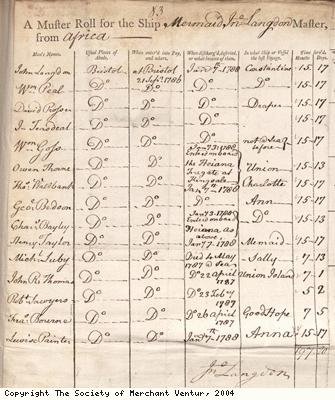 83
A Muster Roll for the Ship Mermaid Jno Langdon Master,
from Africa
Men's Names. Usual Places of Abode. When enter'd into Pay, and where. When discharg'd, deserted, or what became of them. In what Ship or Vessel the last Voyage. Time serv'd Months Days
John Langdon Bristol at Bristol 21 Sept 1786 Jany 7th 1788 Constantine 15 - 17
Wm Peal Do Do Do Do 15 - 17
David Rosser Do Do Do Draper 15 - 17
Jn Teasdeal Do Do Do 15 - 17
Wm Goss Do Do Jany 3d 1788 Enter'd on board not to Sea before 15 - 17
Owen Thorne Do Do the Frigate at Union 15 - 13
Thos Do Do Jany 7th 1788 Charlotte 15 - 17
Geo Do Do Do Ann 15 - 17
Chas Bayley Do Do Jany 3 1788 Enter'd on board as above, Do 15 - 13
Henry Taylor Do Do Jany 7 1788 Mermaid 15 - 17
Michl Luby Do Do Died 4 May 1787 @ Sea Sally 7 - 13
John R Thomas Do Do Do 22 April 1787 Union Island 7 - 1
Robt Sawyers Do Do Do 23 Feby 1787 5 2
Thos Bourne Do Do Do 26 April 1787 Good Hope 7 5
Lewis Painter Do Do Jany 7th 1788 Anna 15 - 17
Jno Langdon
Copyright The Society of Merchant Ventur, 2004